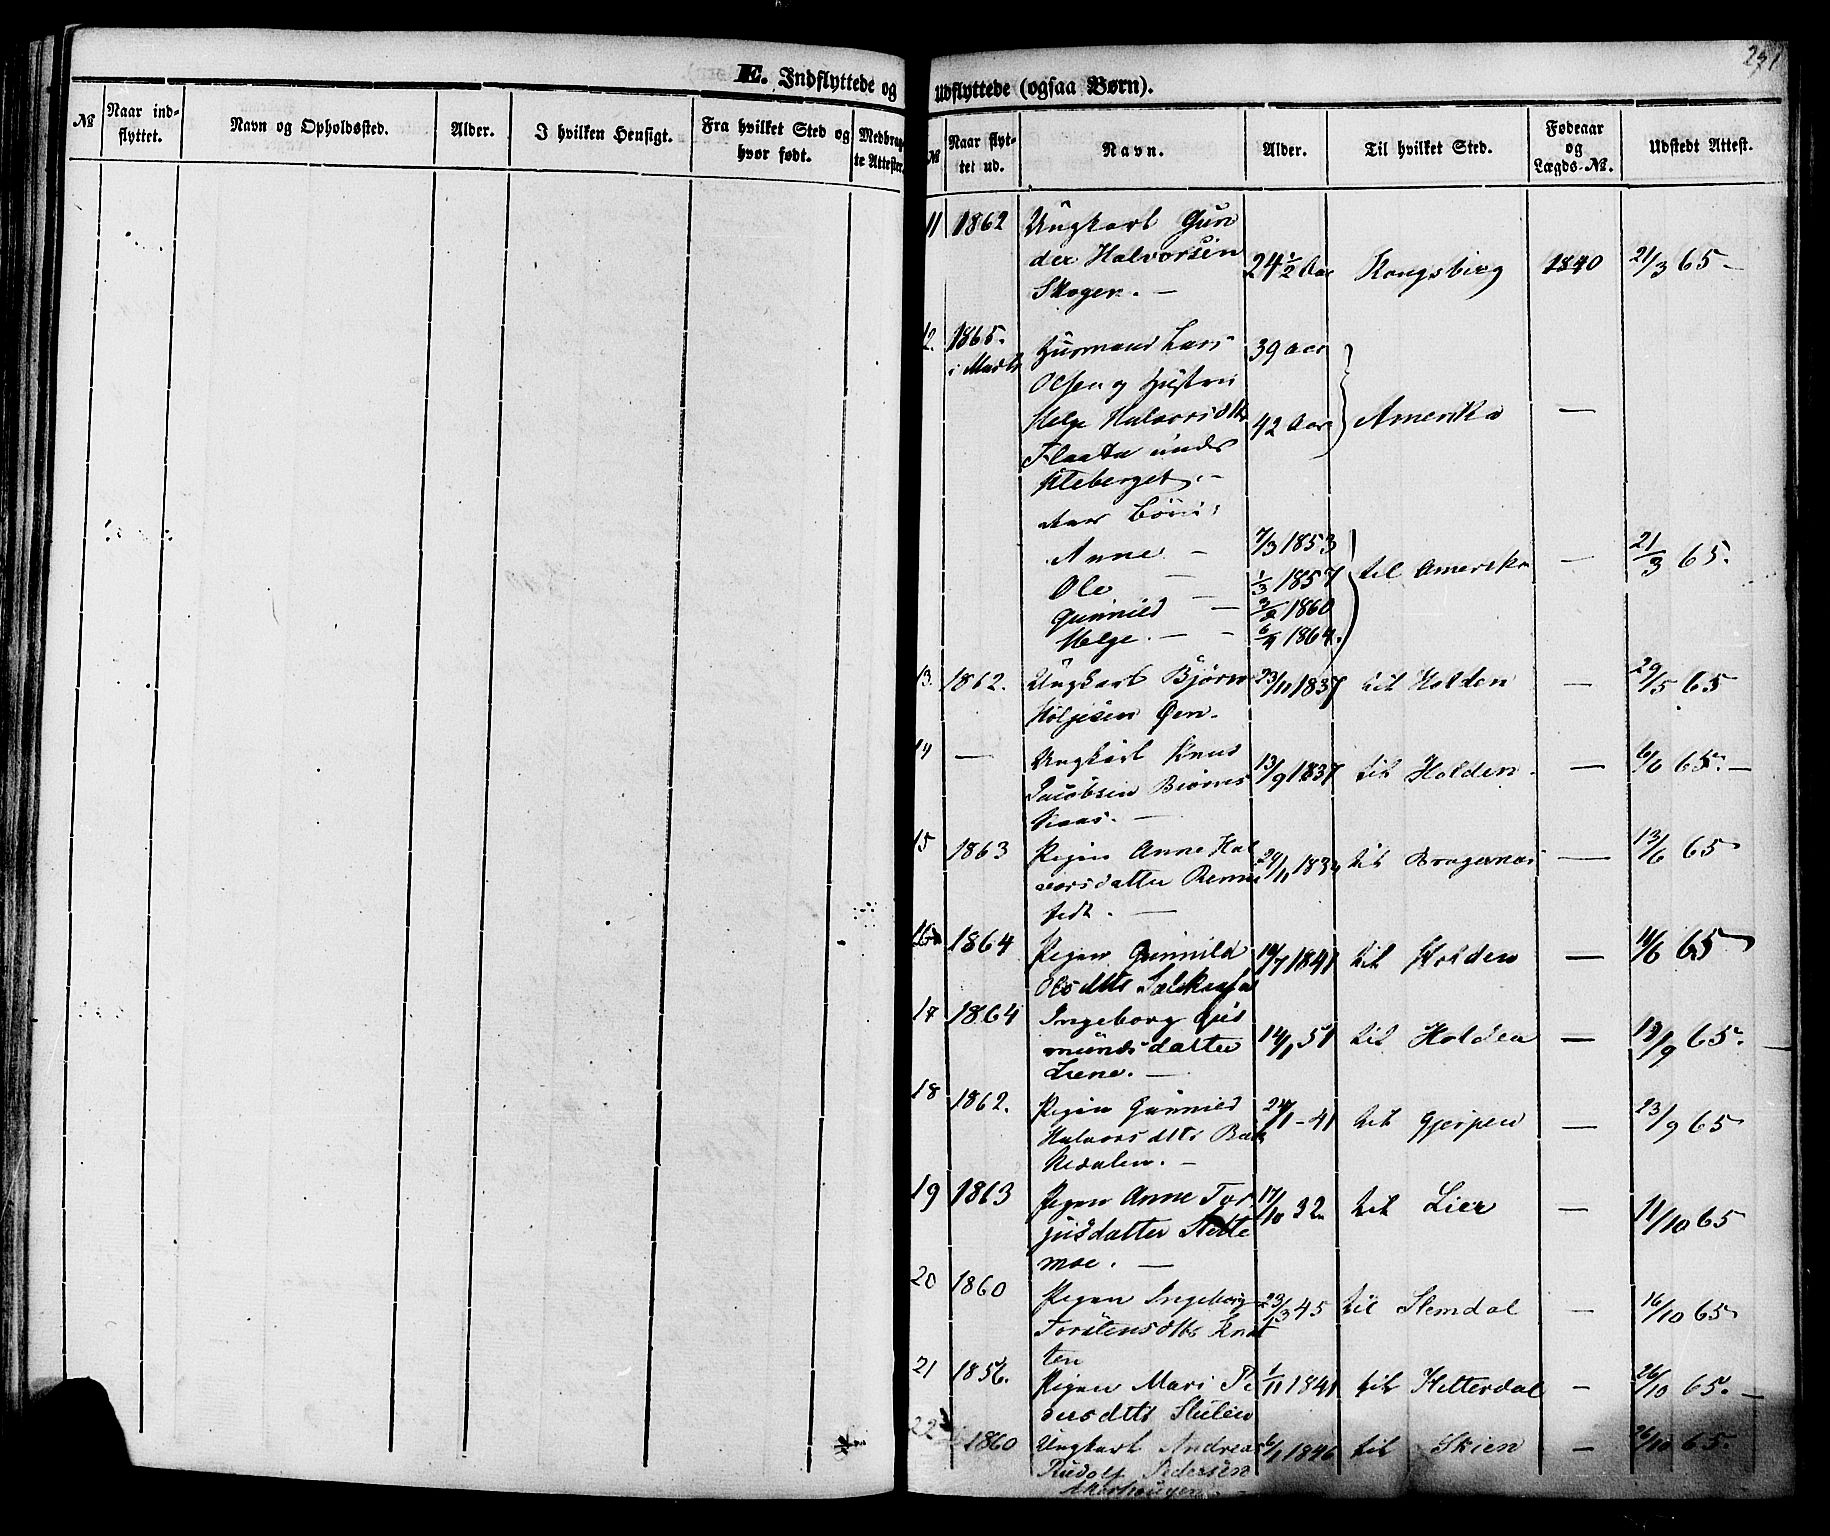 271
E. Indflyttede og
Udflyttede (ogsaa Børn).
№ Naar ind- Navn og Opholdssted. Alder. I hvilken Hensigt. Fra hvilket Sted og Medbrag-
flyttet. hvor født. te Attester.
№ Naar flyt- Navn. Alder. Til hvilket Sted. Fødeaar Udstedt Attest.
tet ud. og
Lægds-№.
11 1862 Ungkarl Gun
der Halvorsen 24½ Aar Kongsberg 1840 21/3 65 –
Skogen. –
12. 1865. Husmand Lars 39 Aar
i Marts Olsen og Hustru
Helge Halvorsdtr 42 Aar Amerika —
Flaata under
Kleberget. –
deres Børn:
Anne – 7/3 1853
Ole – 1/3 1857 til Amerika – 21/3 65.
Gunnild – 3/2 1860
Helge. – – 6/4 1864.
13. 1862. Ungkarl Bjørn 23/11 1837 til Holden – 29/5 65
Høljesen Øen.
14 — Ungkarl Knud 13/9 1837 til Holden. — 6/6 65. –
Jacobsen Biørnes
–
15 1863 Pigen Anne Hal
vorsdatter til Bragernæs — 13/6 65
—
16 1864 Pigen Gunnild 14/7 1841 til Holden — 65
Olsdtr
17 1864 Ingeborg Gus 14/1 51 til Holden — 19/9 65.
mundsdatter
Liene. –
18 1862. Pigen Gunnild 24/1 – 41 til Gjerpen — 23/9 65
Halvorsdtr Bak
kedalen. –
19 1863 Pigen Anne Tor 17/10 32 til Lier – 11/10 65
jusdatter Slette
moe. —
20 1860 Pigen Ingeborg 23/3 45 til Slemdal – 16/10 65
Torstensdtr Knut
ten
21 1856. Pigen Mari Pe 1/11 1841 til Hitterdal – 26/10 65. –
dersdtr Stulen
22 1860 Ungkarl Andreas 6/1 1846 til Skien – 26/10 65.
Rudolf Pedersen
Akerhaugen. –